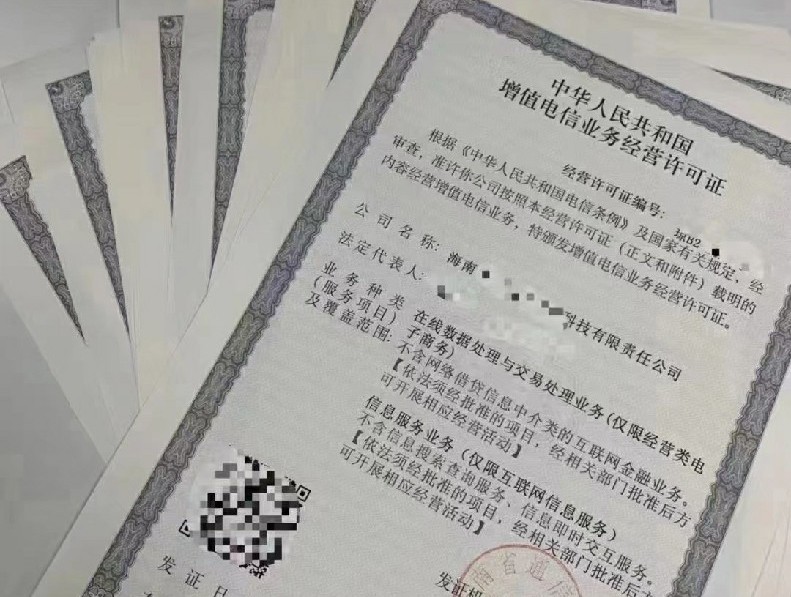 中华人民共和国
增值电信业务经营许可证
经营许可证编号: 琼B2
根据《中华人民共和国电信条例》及国家有关规定，经
审查，准许你公司按照本经营许可证（正文和附件）载明的
内容经营增值电信业务，特颁发增值电信业务经营许可证。
公司名称: 海南 科技有限责任公司
法定代表人:
业务种类 在线数据处理与交易处理业务(仅限经营类电
(服务项目) 子商务)
及覆盖范围: 不含网络借贷信息中介类的互联网金融业务。
【依法须经批准的项目，经相关部门批准后方
可开展相应经营活动】
信息服务业务（仅限互联网信息服务）
不含信息搜索查询服务、信息即时交互服务。
【依法须经批准的项目，经相关部门批准后方
可开展相应经营活动】
南省通信
发证机
发证日